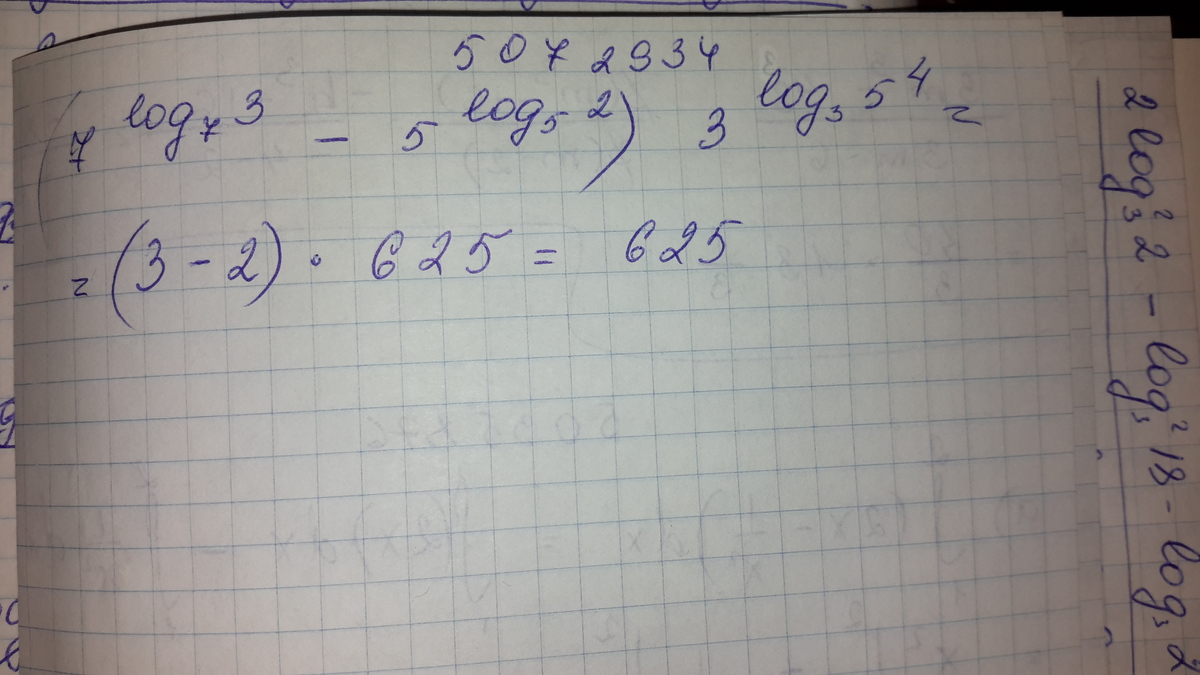 5072934
(7^{log_7 3} - 5^{log_5 2}) 3^{log_3 5^4} =
= (3 - 2) · 625 = 625
2 log_3^2 2 - log_3^2 18 - log_3 2